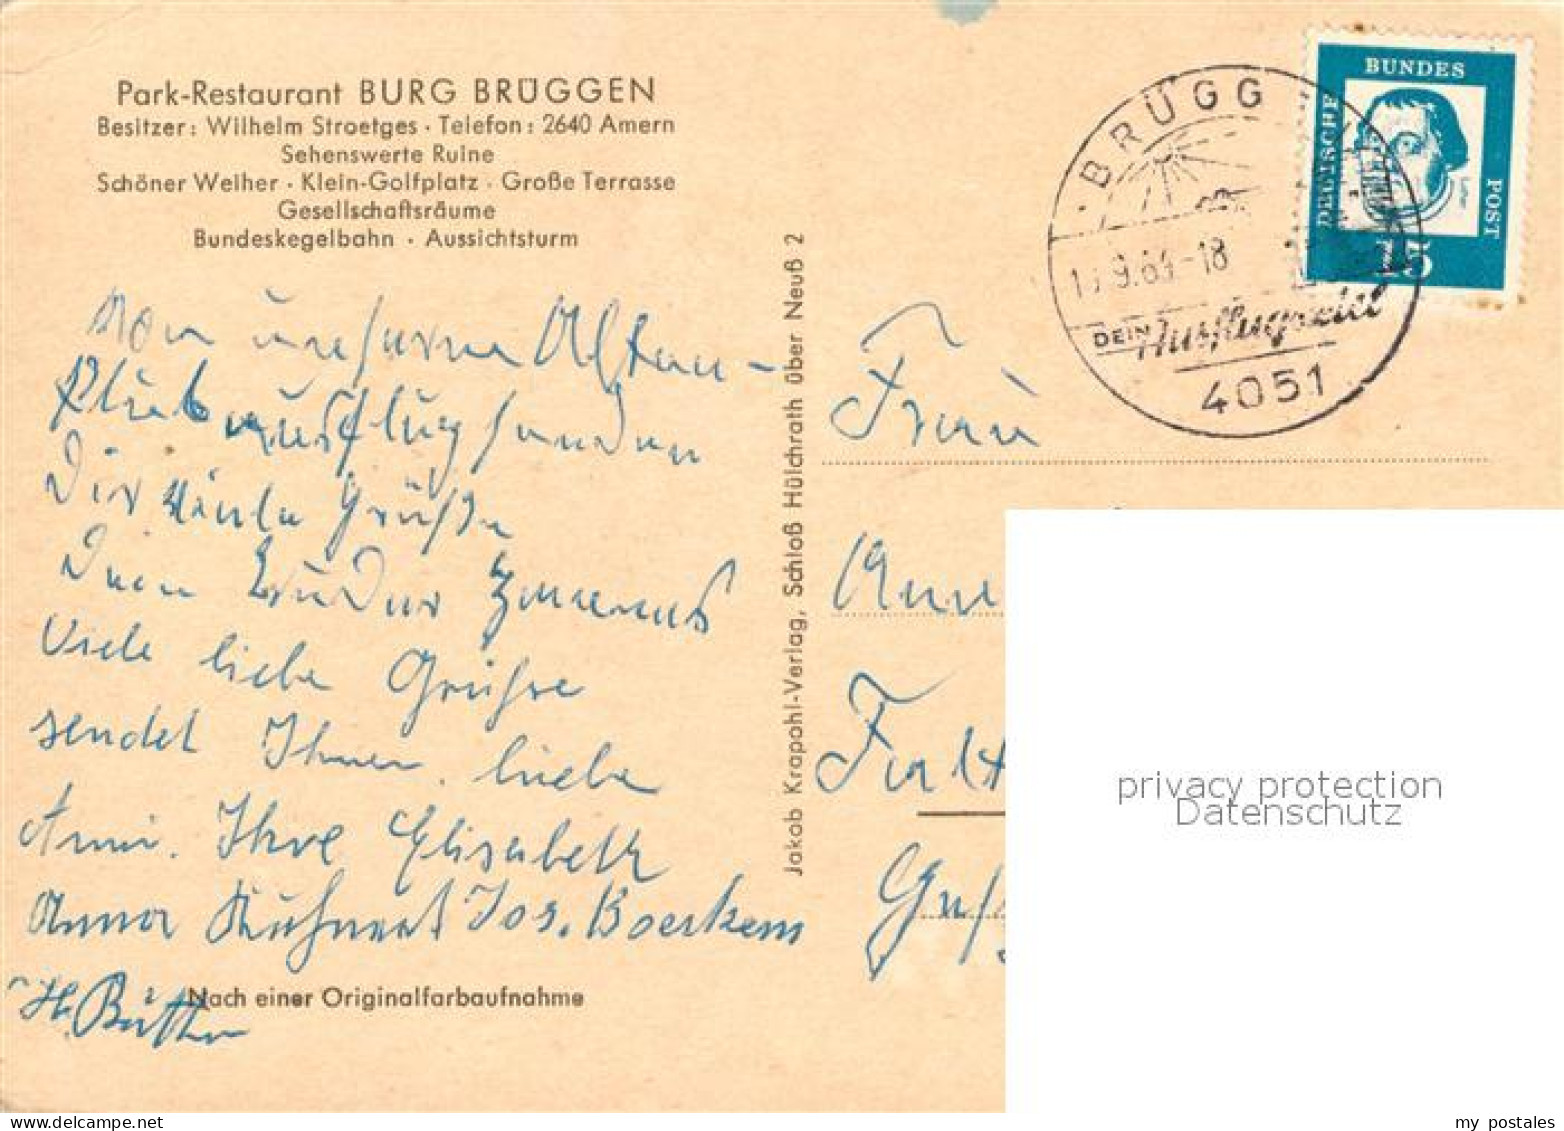 Park-Restaurant BURG BRÜGGEN
Besitzer: Wilhelm Stroetges · Telefon: 2640 Amern
Sehenswerte Ruine
Schöner Weiher · Klein-Golfplatz · Große Terrasse
Gesellschaftsräume
Bundeskegelbahn · Aussichtsturm
Von unserem Alten-
klub ausflug senden
Dir viele Grüße
Dein Bruder
Viele liebe Grüße
sendet Ihnen liebe
Anni. Ihre Elisabeth
Anna Kuhnert Jos. Boerkem
H. Bütt
Nach einer Originalfarbaufnahme
Jakob Krapohl-Verlag, Schloß Hülchrath über Neuß 2
BRÜGG
9.64-18
DEIN Ausflugsziel
4051
BUNDES
DEUTSCHE
POST
Luther
15
Frau
privacy protection
Datenschutz
my postales